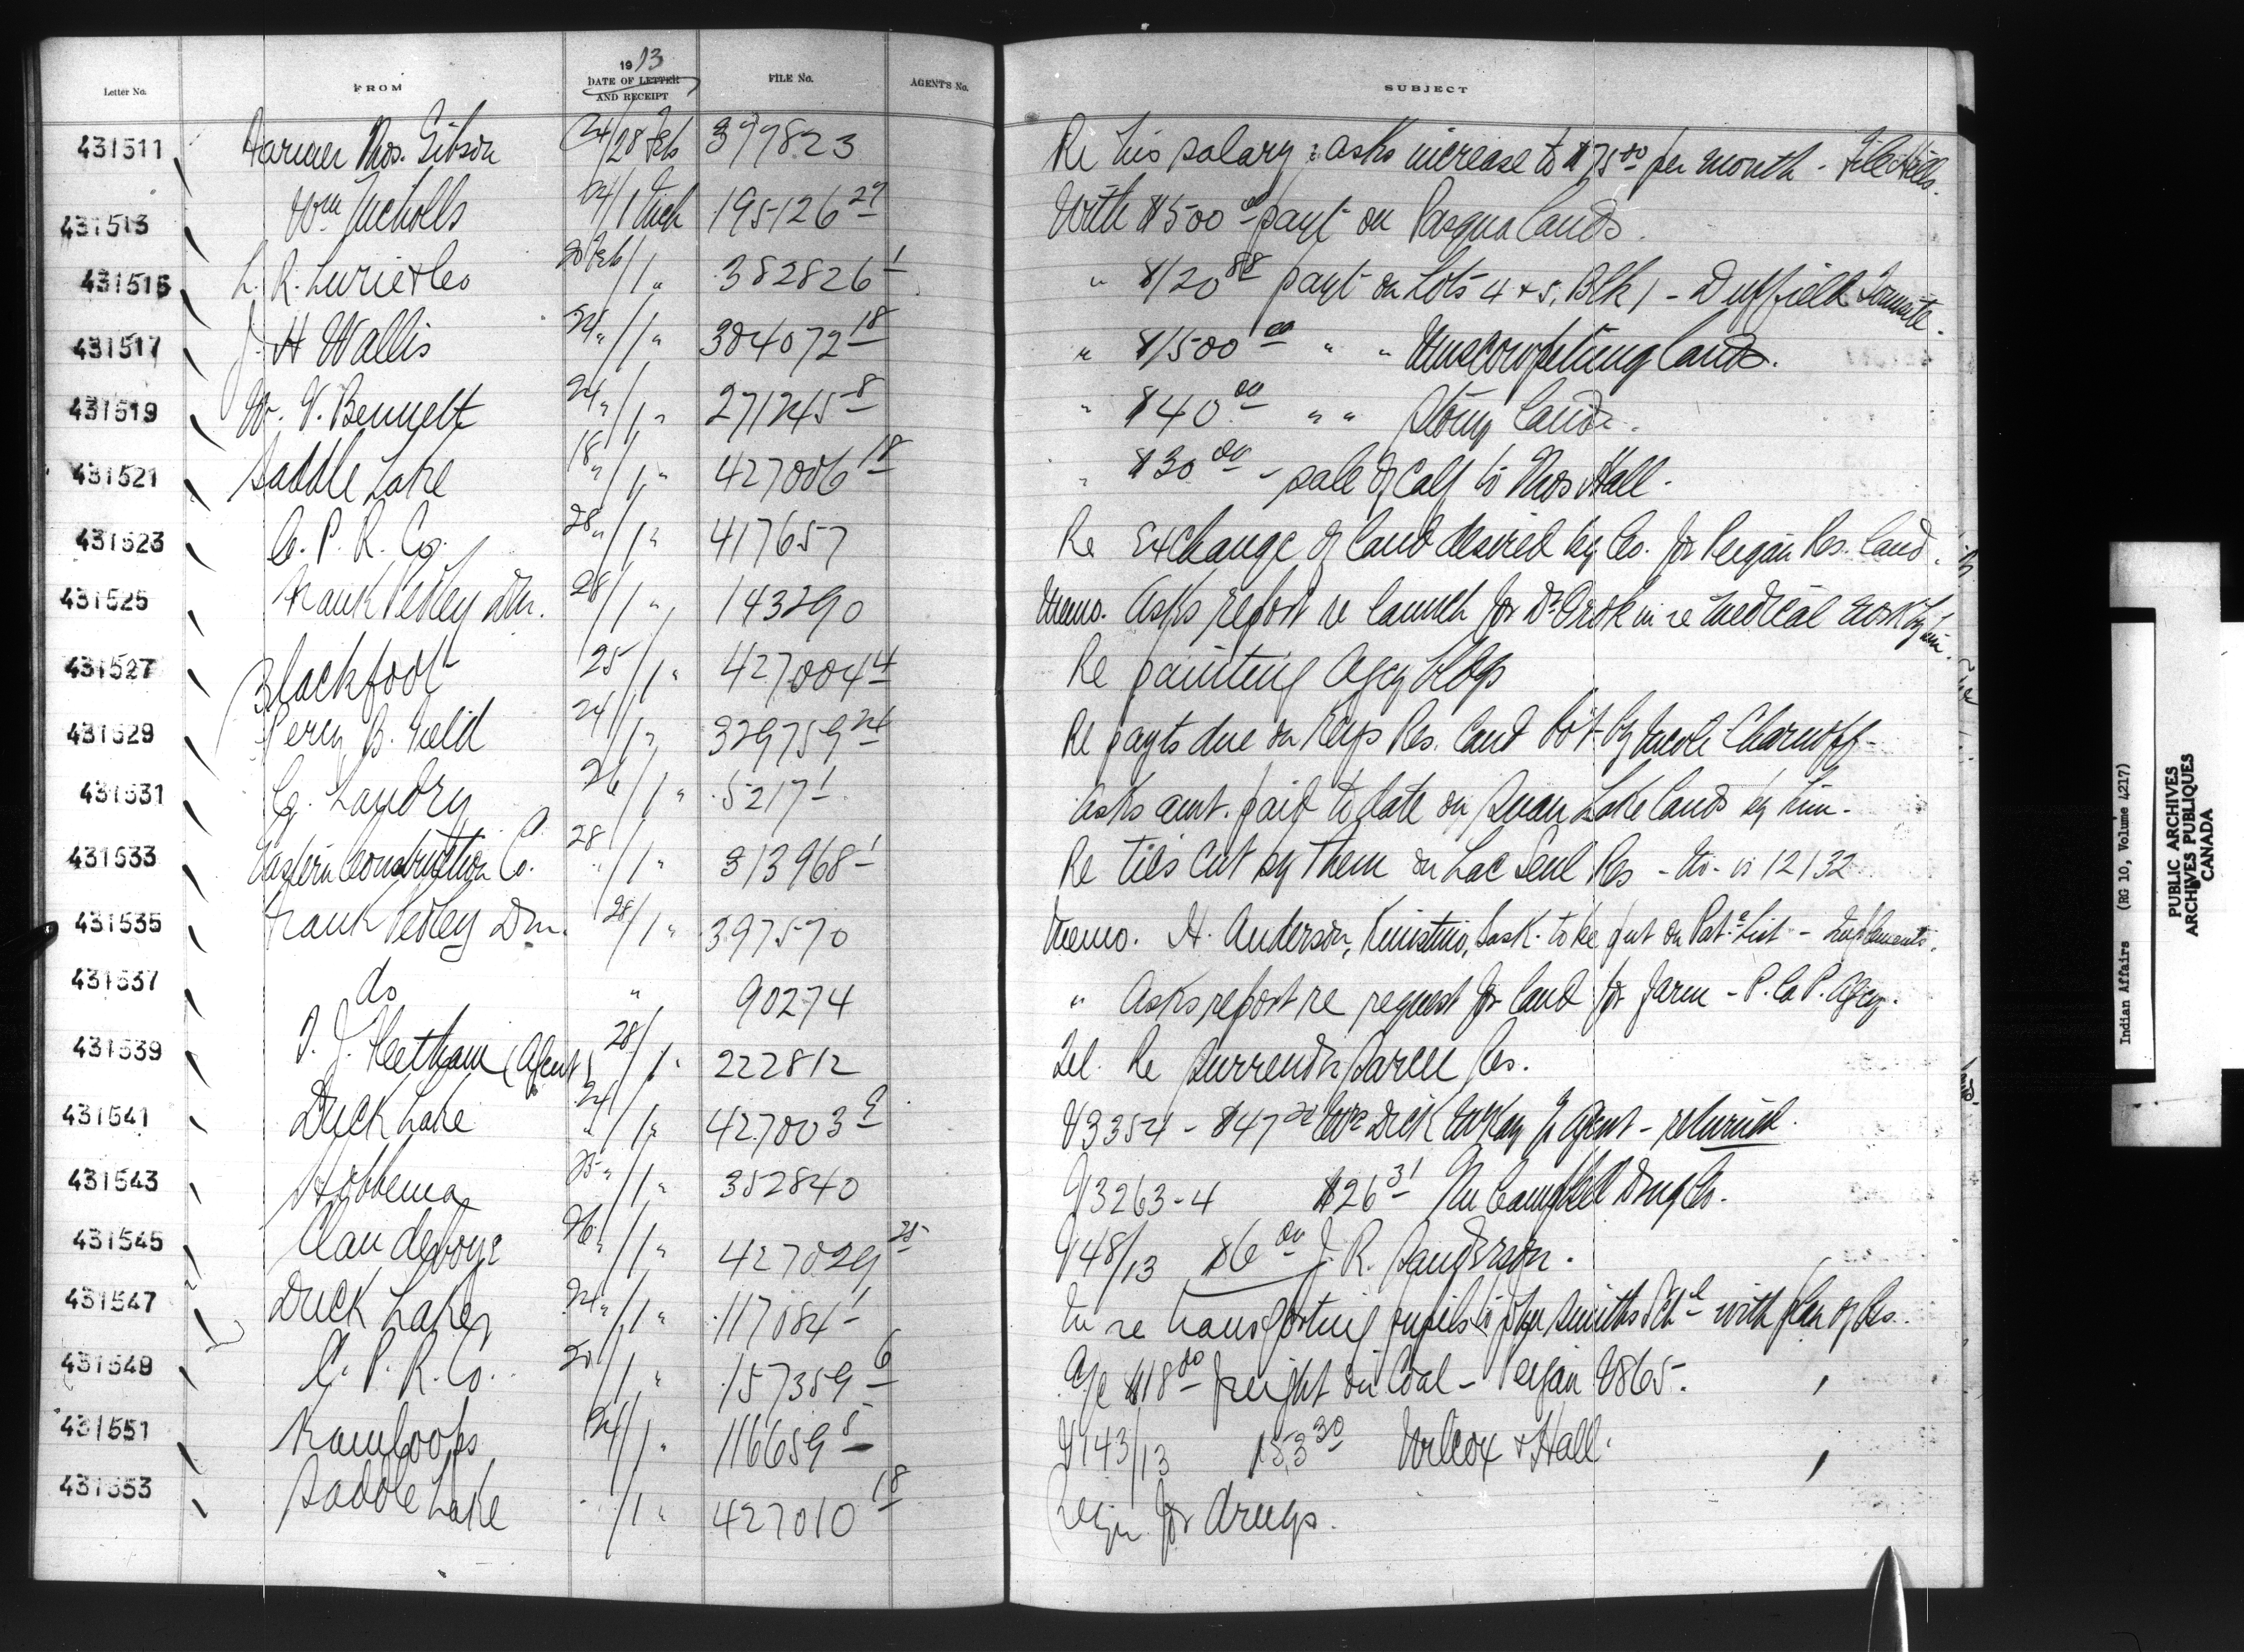 Letter No. FROM 1913 DATE OF LETTER AND RECEIPT FILE No. AGENT'S No. SUBJECT
431511 Farmer Thos. Gibson 24/28 Feb 399823 Re his salary: asks increase to $75.00 per month - File Hills.
431513 Wm Nicholls 24/1 Mch 195126 29 With $500 00 payt on Pasqua lands.
431515 L. R. 20 Feb/1 " 382826 1 " $120 88 payt on Lots 4 & 5, Blk 1 - Duffield Townsite.
431517 J. H Wallis 24 "/1 " 384072 18 " $1500 00 " " lands.
431519 W. V. Bennett 24 "/1 " 271245 8 " $40 00 " " Stony lands.
431521 Saddle Lake 18 "/1 " 427006 18 " $30 00 - sale of calf to Thos Hall.
431523 C. P. R. Co. 28 "/1 " 417657 Re Exchange of land desired by Co. for Peigan Res. land.
431525 Frank Pedley Dm. 28/1 " 143290 Memo. Asks report re launch for Dr in re medical work by him.
431527 Blackfoot 25/1 " 427004 4 Re painting Agcy bldgs
431529 Percy B. Field 24/1 " 329759 24 Re payts due on Keys Res. land bo't by Charnoff -
431531 G. Landry 26/1 " 5217 1 Asks amt. paid to date on Swan Lake lands by him.
431533 Eastern Construction Co. 28 "/1 " 313968 1 Re ties cut by them on Lac Seul Res - no. is 12132
431535 Frank Pedley Dm. 28/1 " 397570 Memo. H. Anderson, Kinistino, Sask. to be put on Pat.e List - Implements.
431537 do " 90274 " Asks report re request for land for farm - P. La P. Agcy.
431539 T. J. Fleetham (Agent) 28/1 " 222812 Tel. Re surrender Sarcee Res.
431541 Duck Lake 24 "/1 " 427003 9 V3354 - $47 Dick McKay Agent - returned.
431543 Hobbema 25 "/1 " 352840 V3263-4 $26 31 The Campbell Drug Co.
431545 Clandeboye 26 "/1 " 427029 25 V48/13 $6 00 J. R. Sanderson.
431547 Duck Lake 24 "/1 " 117084 1 In re transporting pupils to John Smiths Schl with plan of Res.
431549 C. P. R. Co. 20/1 " 157359 6 A/c $118 00 freight on Coal - Peigan V865.
431551 Kamloops 24/1 " 116659 5 V143/13 $53 30 Wilcox & Hall.
431553 Saddle Lake "/1 " 427010 18 Reqn for drugs.
Indian Affairs (RG 10, Volume 4217)
PUBLIC ARCHIVES
ARCHIVES PUBLIQUES
CANADA